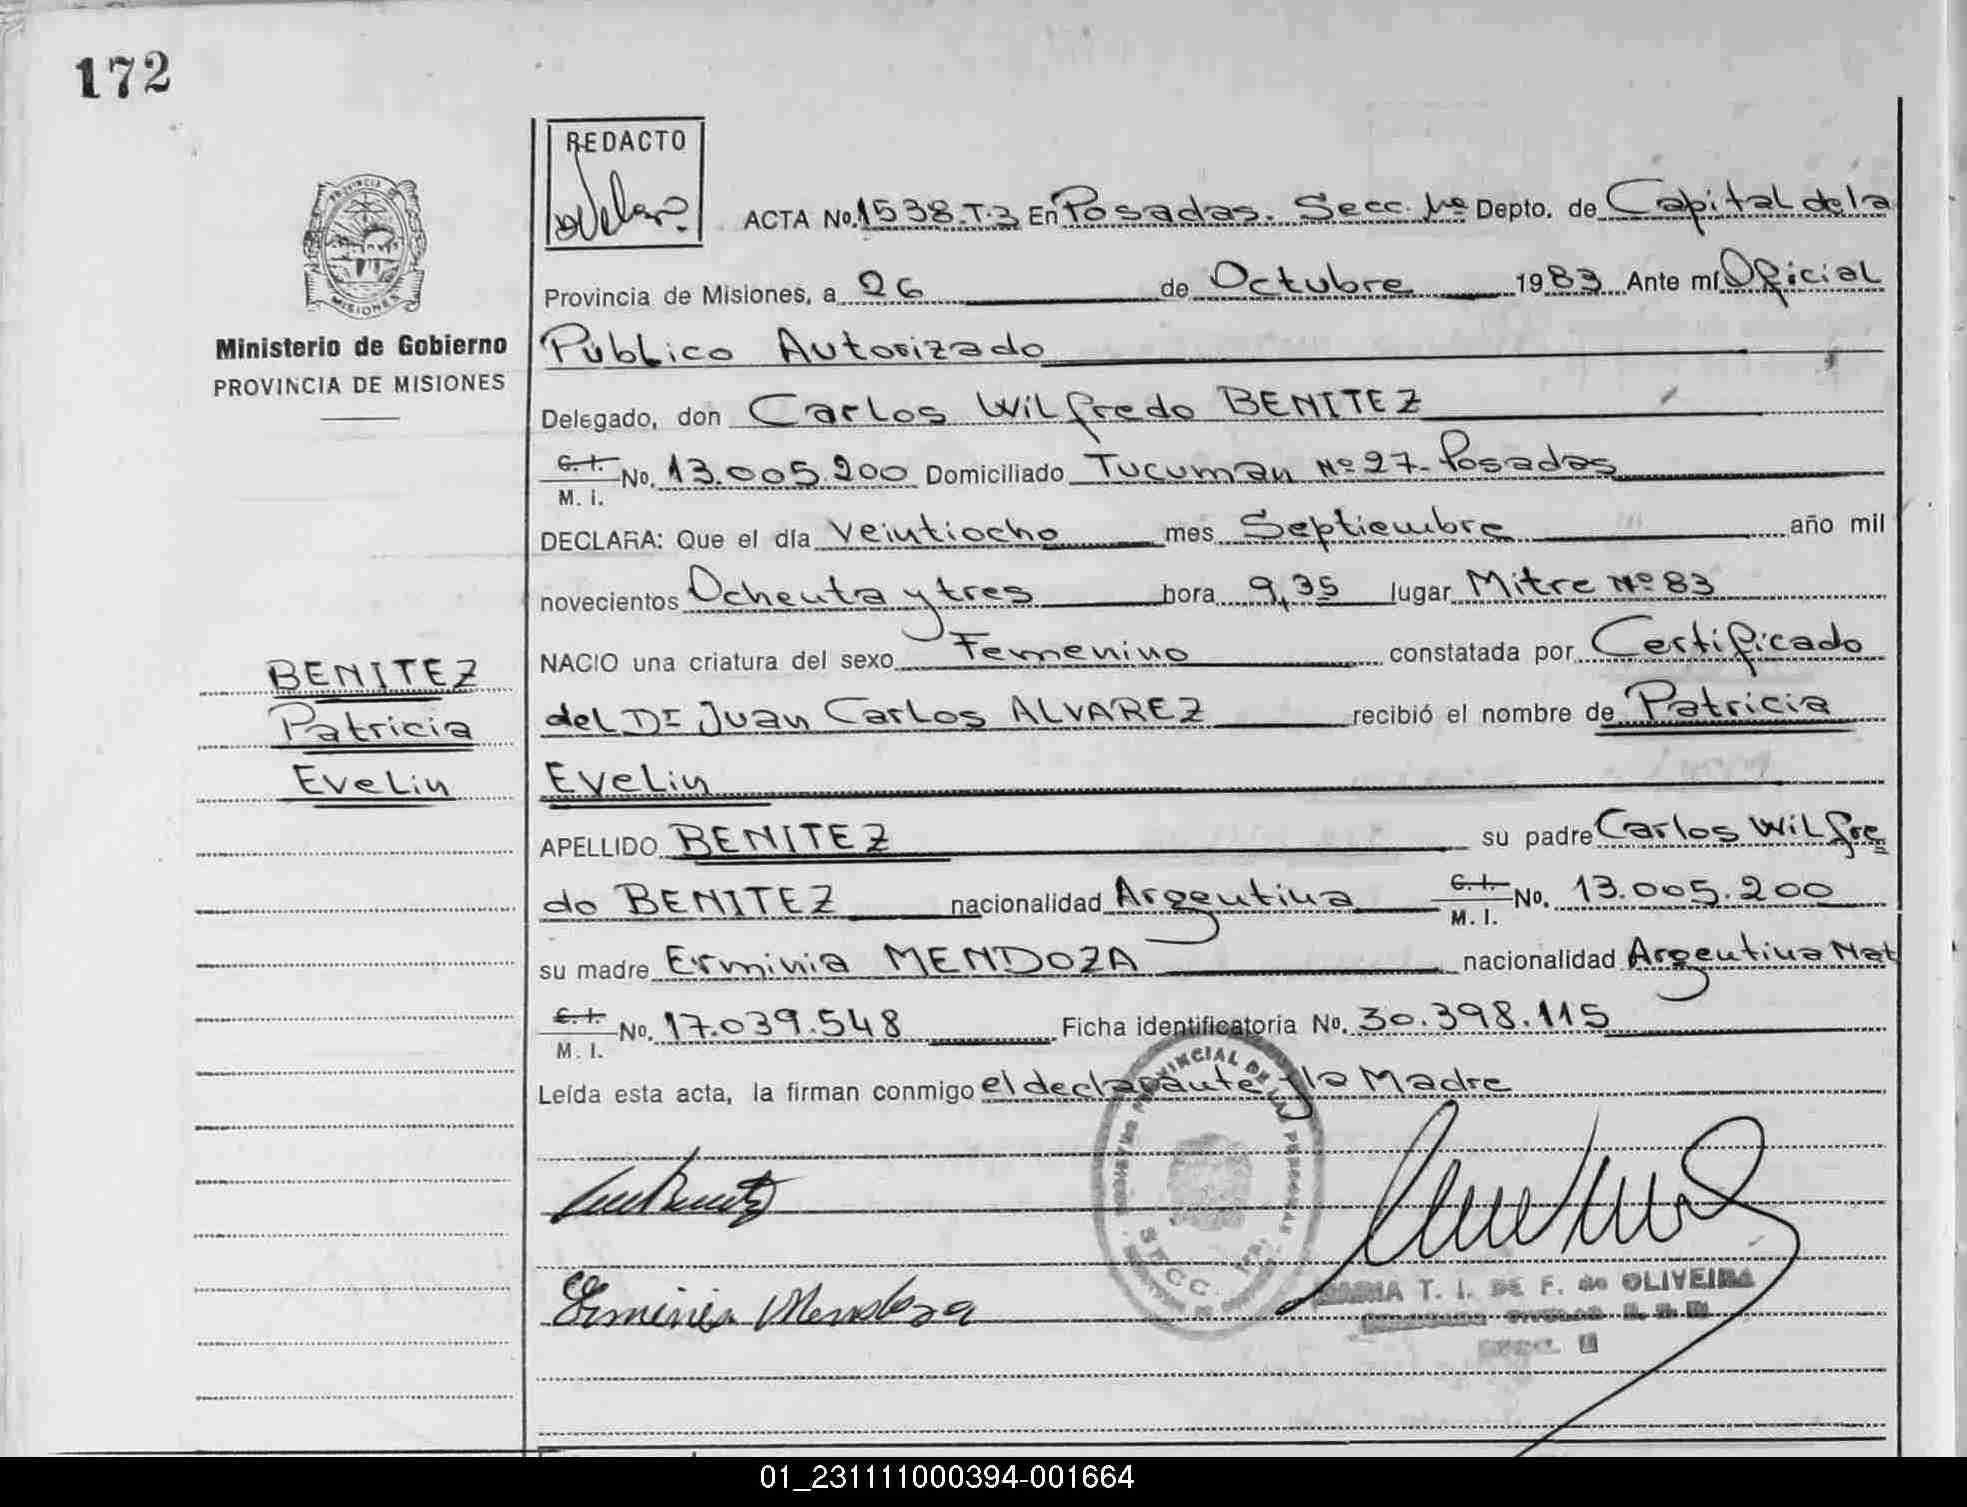 172
REDACTO
ACTA No. 1538.T.3 En Posadas. Secc. 1ra Depto. de Capital de la
PROVINCIA DE MISIONES
Ministerio de Gobierno
PROVINCIA DE MISIONES
Provincia de Misiones, a 26 de Octubre 1983 Ante mí Oficial
Público Autorizado
Delegado, don Carlos Wilfredo BENITEZ
C. I. M. I. No. 13.005.200 Domiciliado Tucuman Nº 27- Posadas
DECLARA: Que el día veintiocho mes Septiembre año mil
novecientos Ochenta y tres hora 9,35 lugar Mitre Nº 83
NACIO una criatura del sexo Femenino constatada por Certificado
del Dr Juan Carlos ALVAREZ recibió el nombre de Patricia
Evelin
BENITEZ
Patricia
Evelin
APELLIDO BENITEZ su padre Carlos Wilfre
do BENITEZ nacionalidad Argentina C. I. M. I. No. 13.005.200
su madre Erminia MENDOZA nacionalidad Argentina Nat
C. I. M. I. No. 17.039.548 Ficha identificatoria No. 30.398.115
Leída esta acta, la firman conmigo el declarante y la Madre
REGISTRO PROVINCIAL DE LAS PERSONAS
SECC. 1ra.
Erminia Mendoza
MARIA T. I. DE F. de OLIVEIRA
01_231111000394-001664